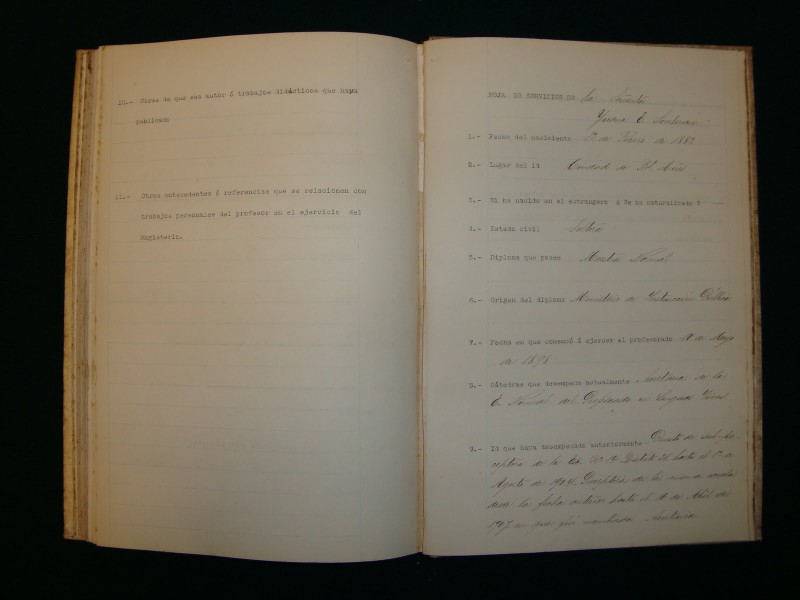 10.- Obras de que sea autor ó trabajos didácticos que haya
publicado
11.- Otros antecedentes ó referencias que se relacionen con
trabajos personales del profesor en el ejercicio del
Magisterio.
HOJA DE SERVICIOS DE la Señorita
Juana E.
1.- Fecha del nacimiento 12 de Febrero de 1882
2.- Lugar del id Ciudad de
3.- Si ha nacido en el extrangero ó Se ha naturalizado ?
4.- Estado civil Soltera
5.- Diploma que posee Maestra Normal
6.- Origen del diploma Ministerio de Instrucción Pública
7.- Fecha en que comenzó á ejercer el profesorado de Mayo
de 1898
8.- Cátedras que desempeña actualmente Secretaria de la
E. Normal del Profesorado en Lenguas Vivas
9.- Id que haya desempeñado anteriormente Puesto de sub-pre-
ceptora de la Esc. Nº Distrito hasta el 1º de
Agosto de 1904. Preceptora de la misma escuela
desde la fecha anterior hasta el de Abril de
1907 en que fui nombrada Secretaria